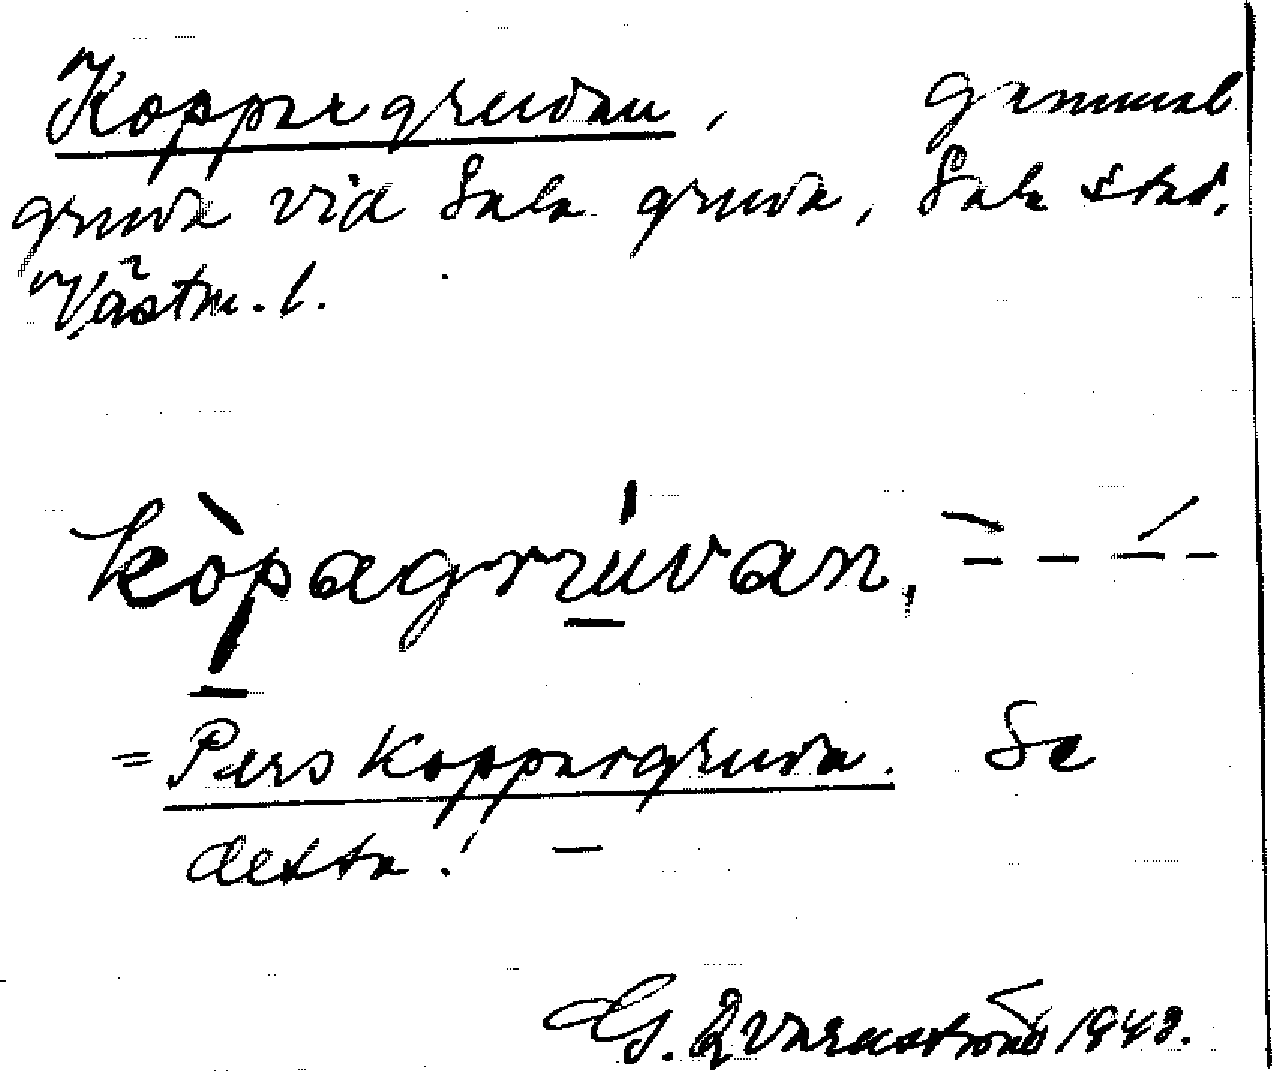 Koppargruvan, gammal
gruva vid Sala gruva, Sala stad,
Västm. l.
kòpagrúvan, ̀– – –́ –
= Pers Koppargruva. Se
detta! –
G. Qvarnström 1948.